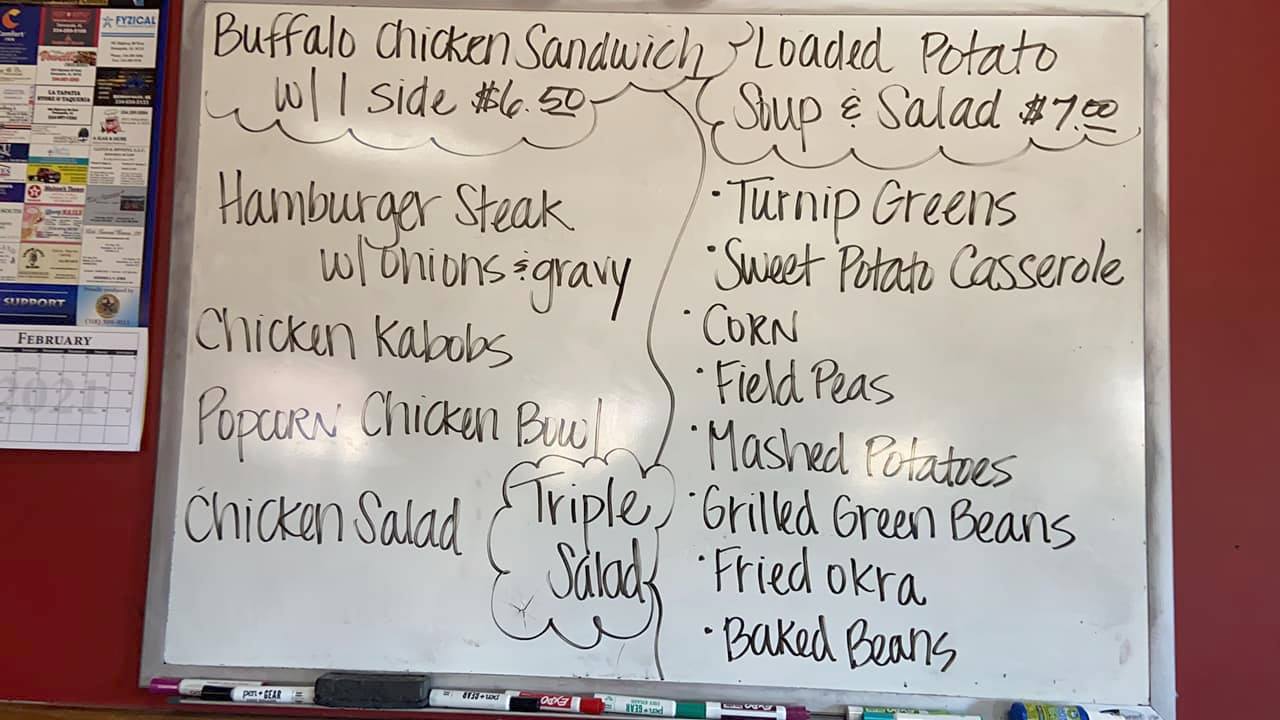 Buffalo Chicken Sandwich
w/ 1 side $6.50
Loaded Potato
Soup & Salad $7.00
Hamburger Steak
w/onions & gravy
Chicken Kabobs
Popcorn Chicken Bowl
Chicken Salad
Triple
Salad
• Turnip Greens
• Sweet Potato Casserole
• CORN
• Field Peas
• Mashed Potatoes
• Grilled Green Beans
• Fried okra
• Baked Beans
FYZICAL
LA TAPATIA
STORE & TAQUERIA
SUPPORT
FEBRUARY
2021
pen+GEAR
pen+GEAR
EXPO
pen+GEAR
EXPO